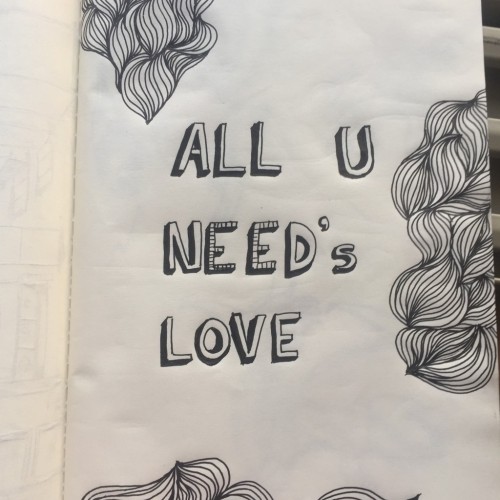 ALL U
NEED's
LOVE